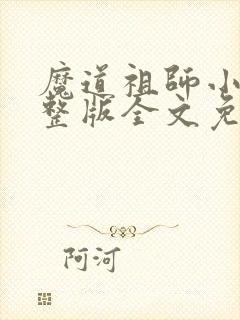 魔道祖師小
整版全文免
阿河